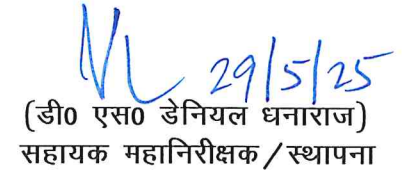 29/5/25
(डी0 एस0 डेनियल धनाराज)
सहायक महानिरीक्षक/स्थापना